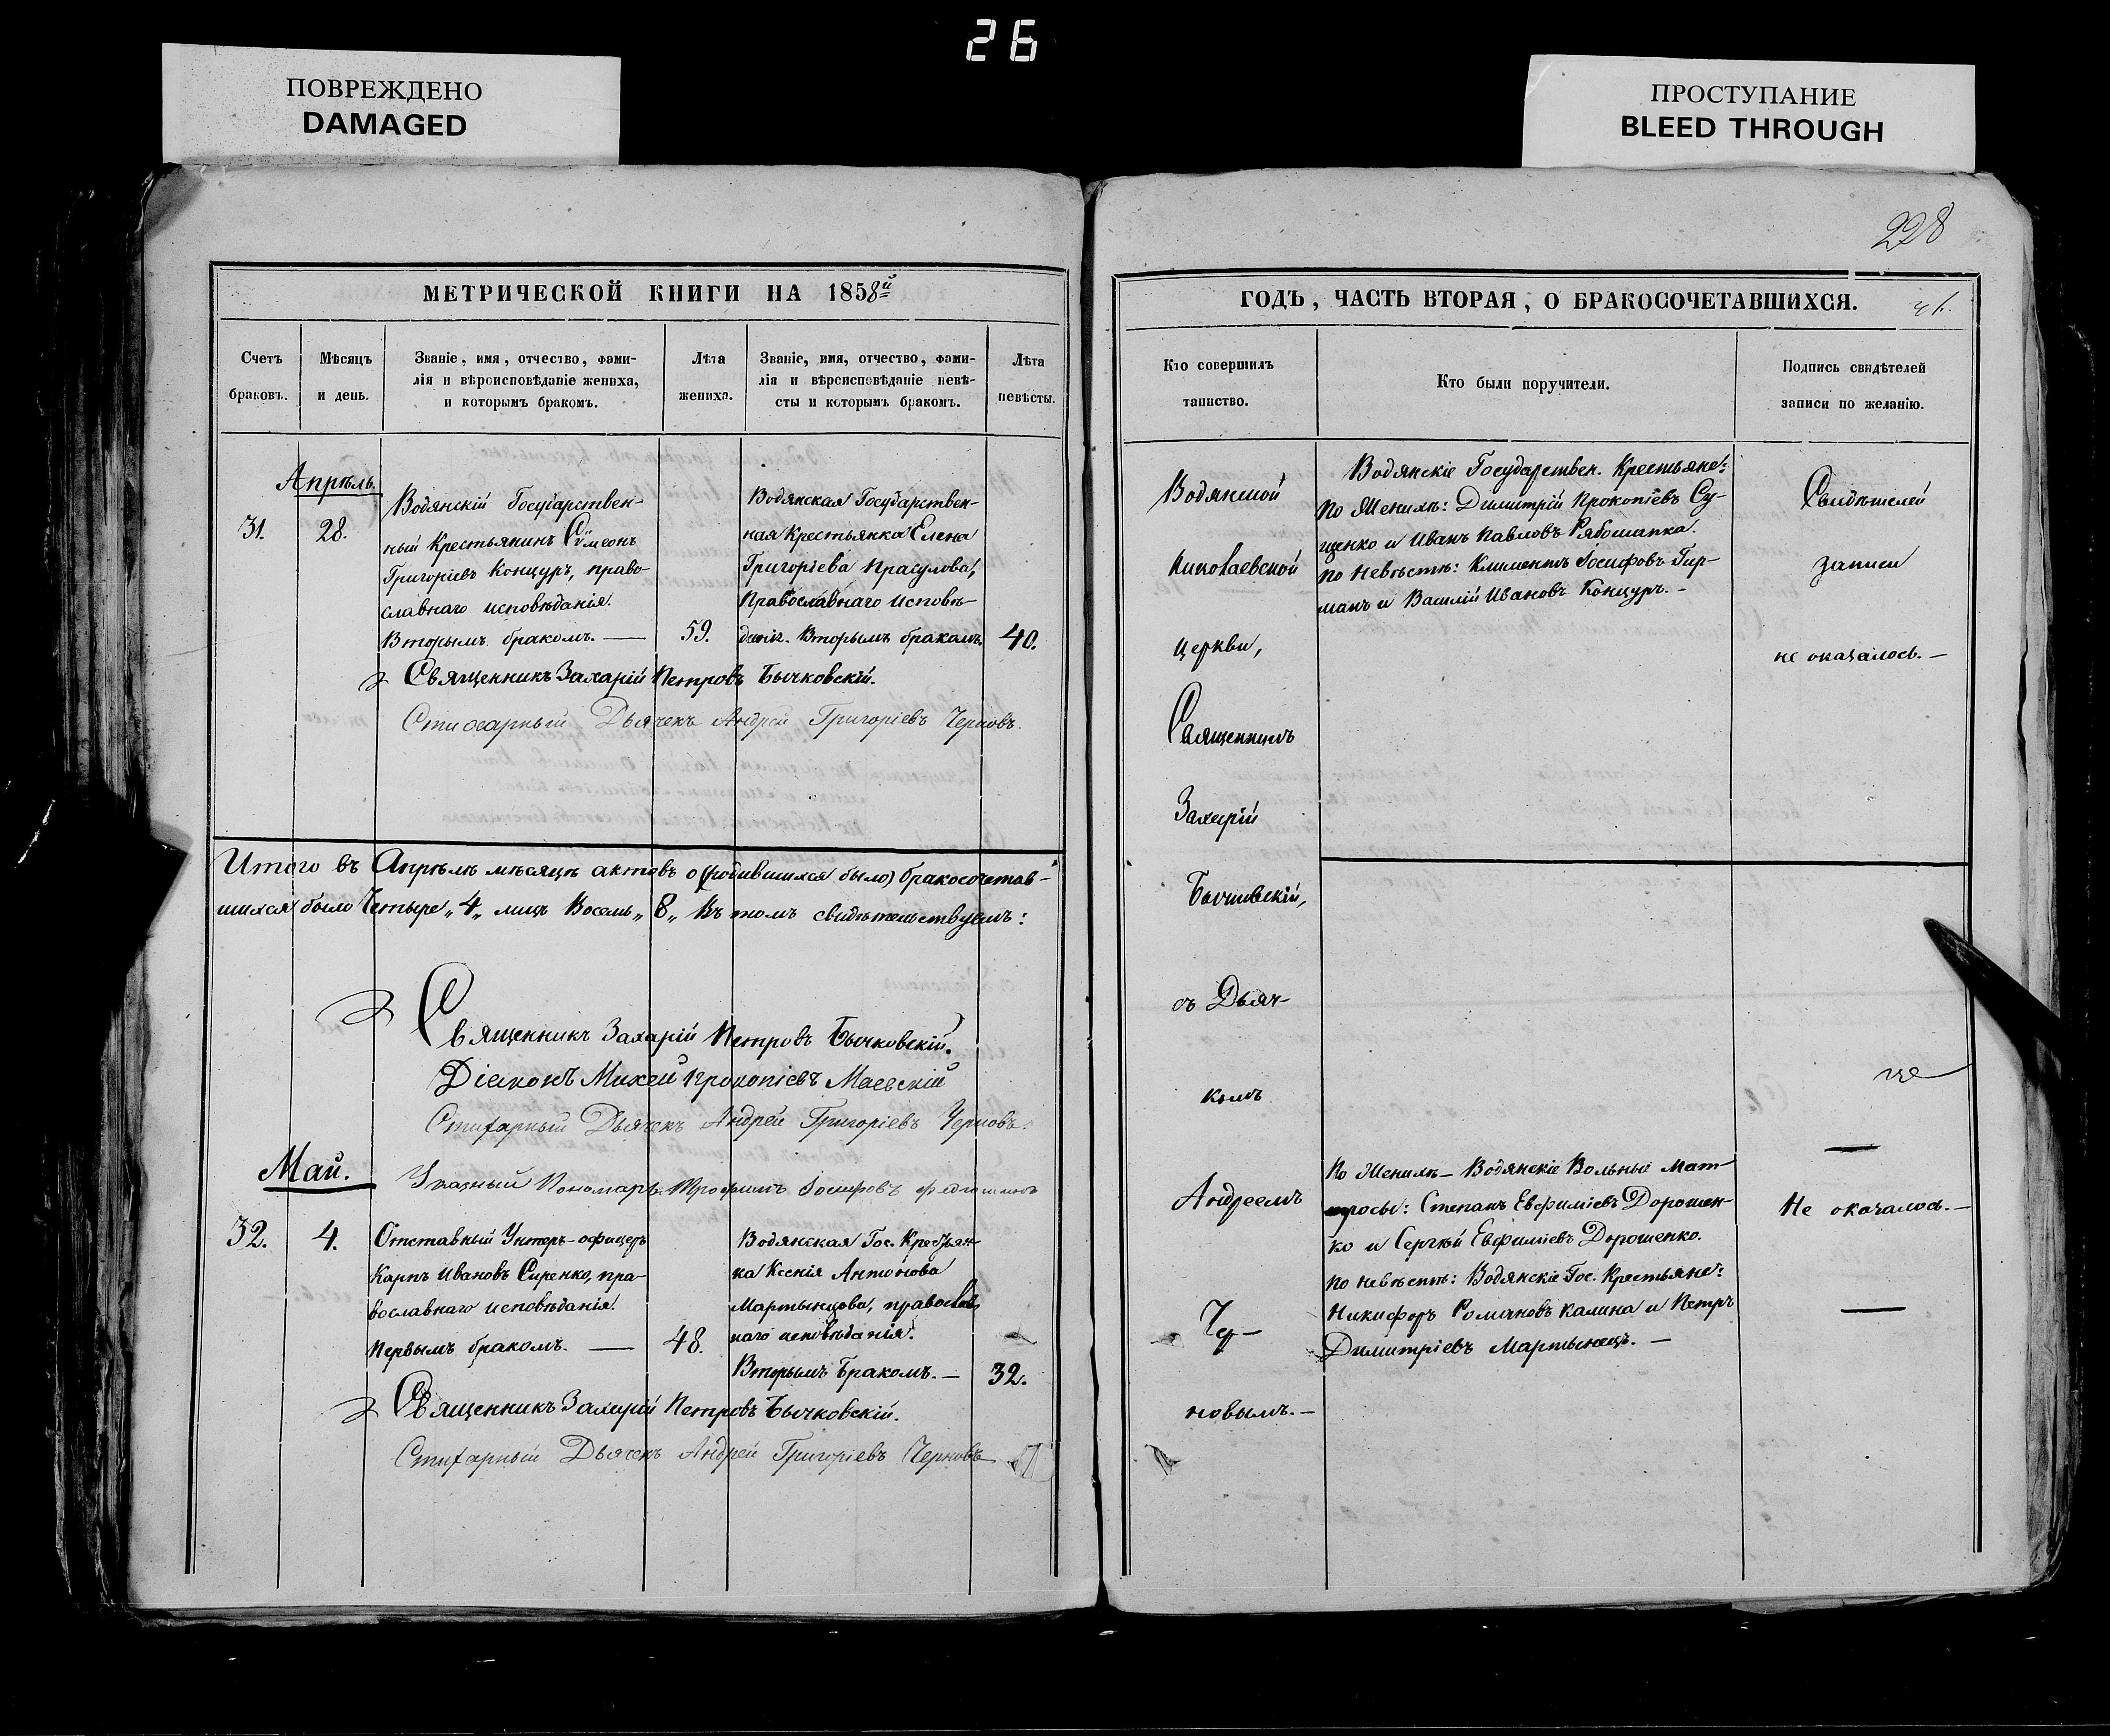 26
ПОВРЕЖДЕНО
DAMAGED
ПРОСТУПАНИЕ
BLEED THROUGH
228
МЕТРИЧЕСКОЙ КНИГИ НА 1858й
Счетъ браковъ.
Мѣсяцъ и день.
Званіе, имя, отчество, фами-
лія и вѣроисповѣданіе жениха,
и которымъ бракомъ.
Лѣта жениха.
Званіе, имя, отчество, фами-
лія и вѣроисповѣданіе невѣ-
сты и которымъ бракомъ.
Лѣта невѣсты.
Апрѣль.
31.
28.
Водянскій Государствен-
ный Крестьянинъ Сѵмеонъ
Григоріевъ Концуръ, право-
славнаго исповѣданія.
Вторымъ бракомъ. —
59.
Водянская Государствен-
ная Крестьянка Елена
Григоріева Прасулова,
Православнаго исповѣ-
данія. Вторымъ бракомъ.
40.
Священникъ Захарій Петровъ Бычковскій.
Стихарный Дьячекъ Андрей Григоріевъ Черновъ.
Итого въ Апрѣлѣ мѣсяцѣ актовъ о (родившихся было) бракосочетав-
шихся было Четыре „4„ лицъ Восемь „8„ Въ томъ свидѣтельствуемъ:
Священникъ Захарій Петровъ Бычковскій.
Діаконъ Михей Прокопіевъ Маевскій
Стихарный Дьячекъ Андрей Григоріевъ Черновъ.
Указный Пономарь Трофимъ Іосифовъ
Май.
32.
4.
Отставный Унтеръ-офицеръ
Карпъ Ивановъ Сиренко, пра-
вославнаго исповѣданія.
Первымъ бракомъ. —
48.
Водянская Гос. Крестьян-
ка Ксенія Антонова
Мартынцова, православ
наго исповѣданія.
Вторымъ Бракомъ. —
32.
Священникъ Захарій Петровъ Бычковскій.
Стихарный Дьячекъ Андрей Григоріевъ Черновъ
ГОДЪ, ЧАСТЬ ВТОРАЯ, О БРАКОСОЧЕТАВШИХСЯ.
Кто совершилъ
таинство.
Кто были поручители.
Подпись свидѣтелей
записи по желанію.
Водянской
Николаевской
церкви,
Священникъ
Захарій
Бычковскій,
съ Дьяч-
комъ
Андреемъ
Чер-
новымъ. —
Водянскіе Государствен. Крестьяне:
По Женихѣ: Димитрій Прокопіевъ Су-
щенко и Иванъ Павловъ Рябошапка.
По Невѣстѣ: Климентъ Іосифовъ Гир-
манъ и Василій Ивановъ Концуръ. -
Свидѣтелей
записи
не оказалось. —
По Женихѣ — Водянскіе Вольные Мат-
росы: Степанъ Евфиміевъ Дорошен-
ко и Сергѣй Евфиміевъ Дорошенко.
По Невѣстѣ: Водянскіе Гос. Крестьяне:
Никифоръ Романовъ Калина и Петръ
Димитріевъ Мартынецъ. —
Не оказалось. —